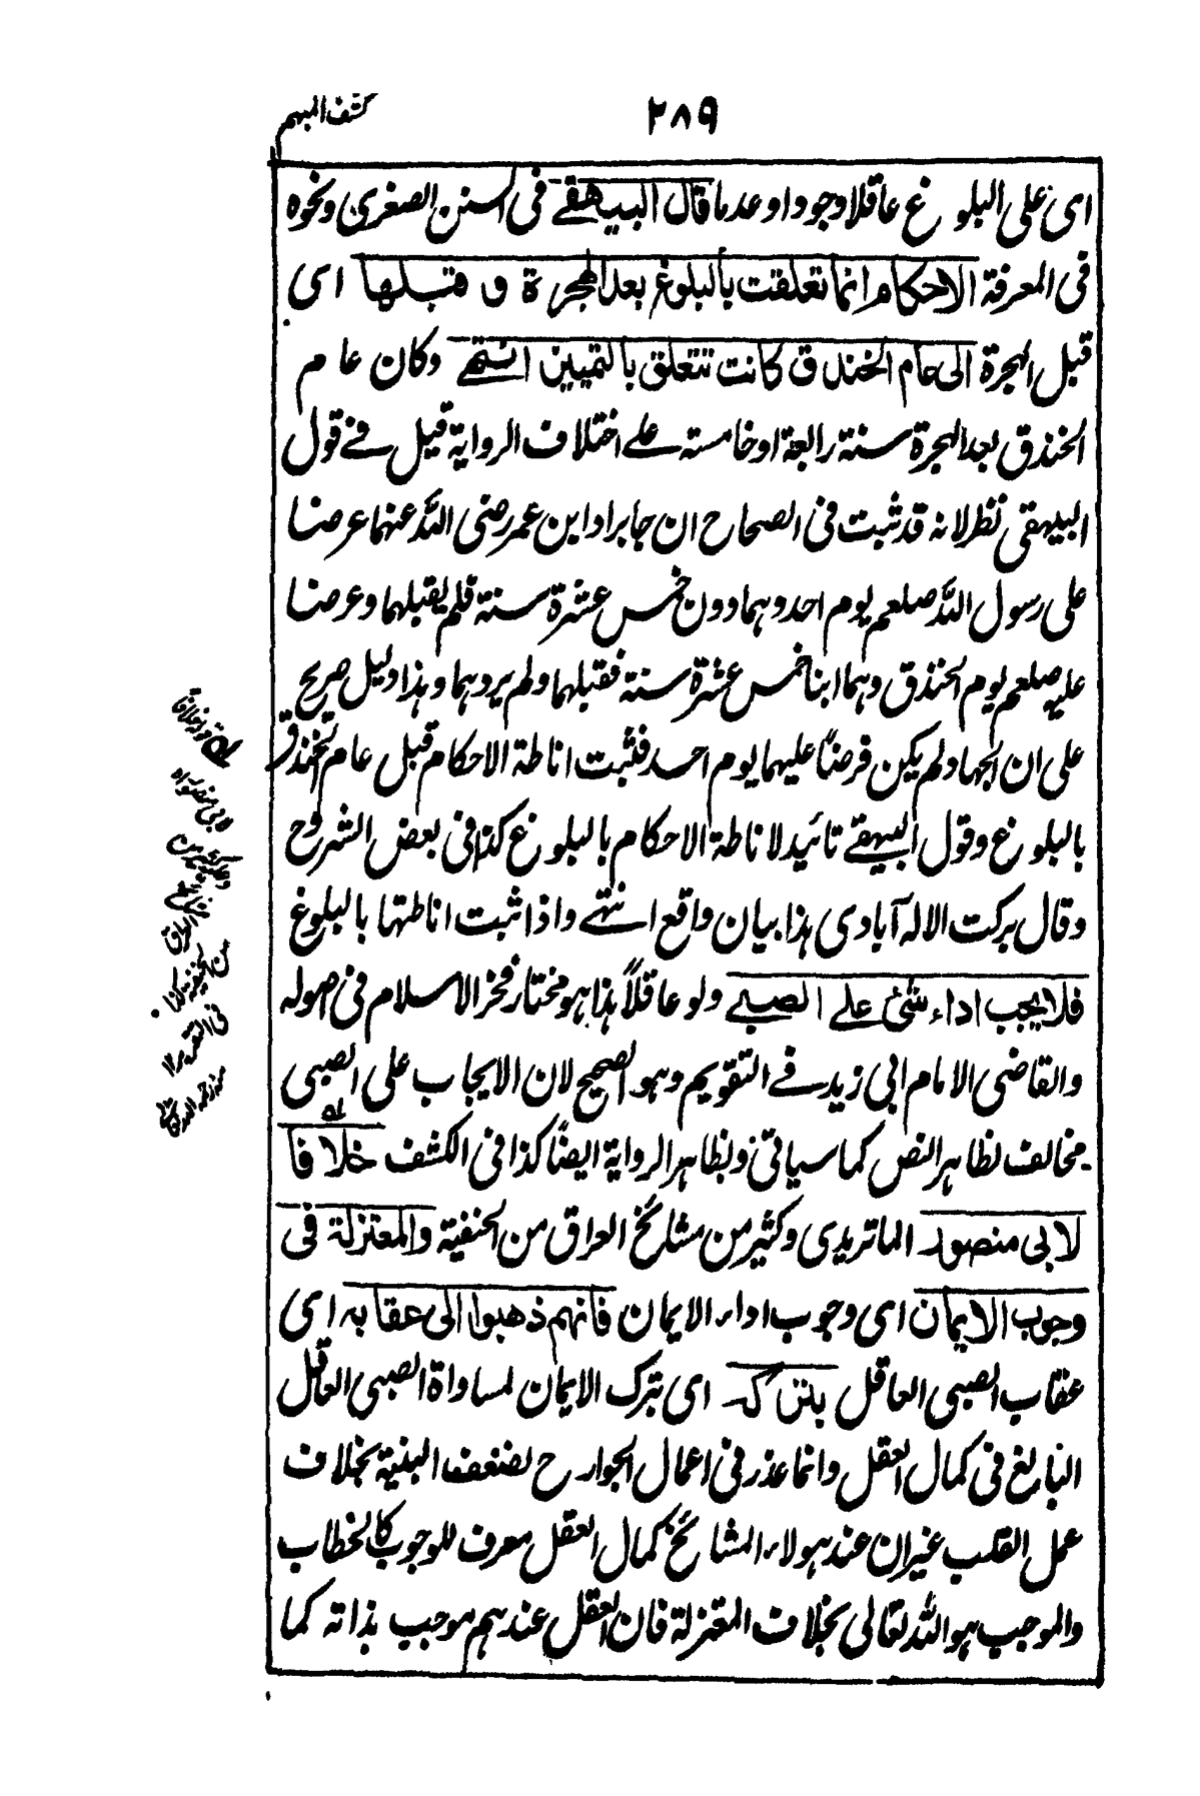 ٢٨٩
كشف المبهم
اى على البلوغ عاقلا وجودا وعدما قال البيهقے فى السنن الصغرى ونحوه
فى المعرفة الاحكام انما تعلقت بالبلوغ بعد الهجرة و قبلها اى
قبل الهجرة الى عام الخندق كانت تتعلق بالتمييز انتهے وكان عام
الخندق بعد الهجرة سنة رابعة او خامسته علے اختلاف الرواية قيل فے قول
البيهقى نظر لانه قد ثبت فى الصحاح ان جابرا و ابن عمر رضى الله عنهما عرضا
على رسول الله صلعم يوم احد وهما دون خمس عشرة سنة فلم يقبلهما وعرضا
عليه صلعم يوم الخندق وهما ابنا خمس عشرة سنة فقبلهما ولم يردهما وهذا دليل صريح
على ان الجهاد لم يكن فرضًا عليهما يوم احد فثبت اناطة الاحكام قبل عام الخندق
بالبلوغ وقول البيهقے تائيد لاناطة الاحكام بالبلوغ كذا فى بعض الشروح
وقال بركت الاله آبادى هذا بيان واقع انتهے واذا ثبت اناطتها بالبلوغ
فلا يجب اداء شئ علے الصبے ولو عاقلاً هذا هو مختار فخر الاسلام فى اصوله
والقاضى الامام ابى زيد فے التقويم وهو الصحيح لان الايجاب على الصبى
مخالف لظاهر النص كما سياتى ولظاهر الرواية ايضًا كذا فى الكشف خلافا
لابى منصور الماتريدى وكثير من مشائخ العراق من الحنفية والمعتزلة فى
وجوب الايمان اى وجوب اداء الايمان فانهم ذهبوا الى عقابه اى
عقاب الصبى العاقل بتركه اى بترك الايمان لمساواة الصبى العاقل
البالغ فى كمال العقل وانما عذر فى اعمال الجوارح لضعف البنية بخلاف
عمل القلب غير ان عند هولاء المشائخ كمال العقل معرف للوجوب كالخطاب
والموجب هو الله تعالى بخلاف المعتزلة فان العقل عندهم موجب بذاته كما
له قوله خلافا
لابى منصور اه
من الحنفية كذا
فى التقرير ١٢